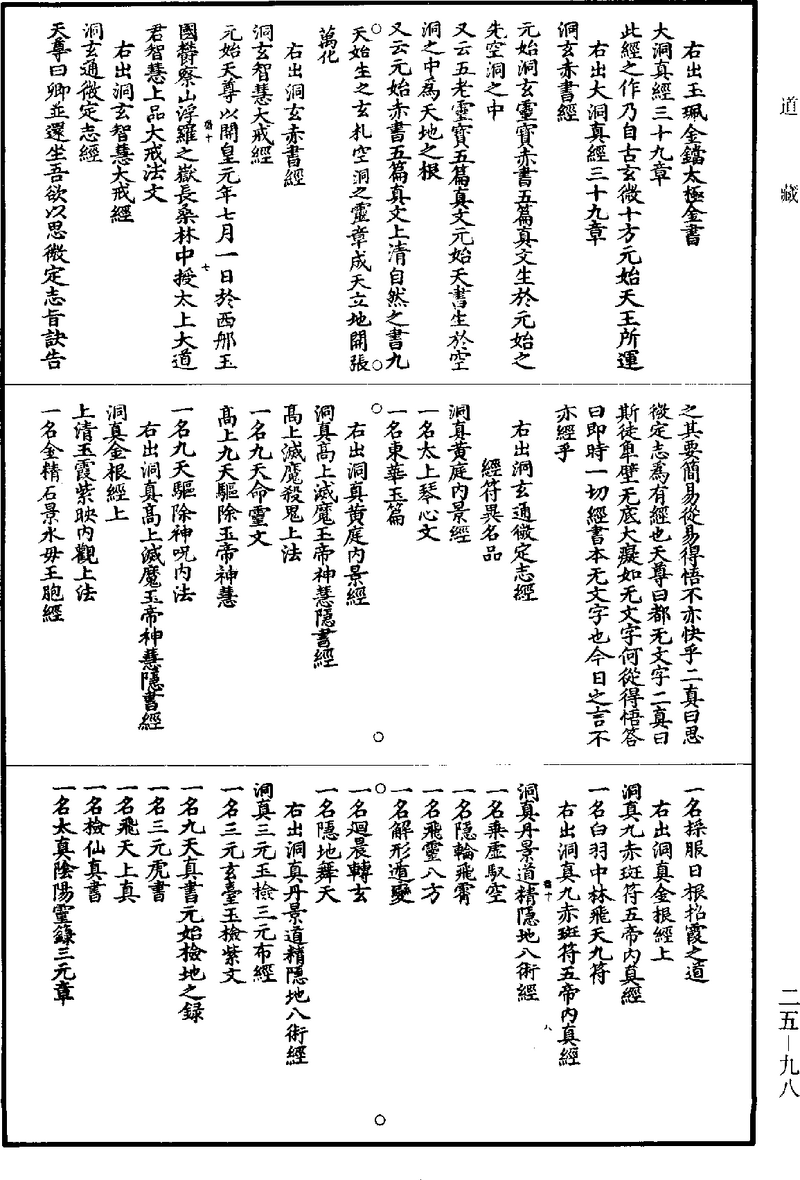 道藏
右出玉珮金鐺太極金書
大洞真經三十九章
此經之作乃自古玄微十方元始天王所運
右出大洞真經三十九章
洞玄赤書經
元始洞玄靈寶赤書五篇真文生於元始之
先空洞之中
又云五老靈寶五篇真文元始天書生於空
洞之中為天地之根
又云元始赤書五篇真文上清自然之書九
天始生之玄札空洞之靈章成天立地開張
萬化
右出洞玄赤書經
洞玄智慧大戒經
元始天尊以開皇元年七月一日於西那玉
國欝察山浮羅之嶽長桑林中授太上大道
君智慧上品大戒法文
右出洞玄智慧大戒經
洞玄通微定志經
天尊曰卿並還坐吾欲以思微定志旨訣告
之其要簡易從易得悟不亦快乎二真曰思
微定志為有經也天尊曰都无文字二真曰
斯徒卑壁无底大癡如无文字何從得悟答
曰即時一切經書本无文字也今日之言不
亦經乎
右出洞玄通微定志經
經符異名品
洞真黄庭內景經
一名太上琴心文
一名東華玉篇
右出洞真黄庭內景經
洞真高上滅魔玉帝神慧隱書經
高上滅魔殺鬼上法
一名九天命靈文
高上九天驅除玉帝神慧
一名九天驅除神呪內法
右出洞真高上滅魔玉帝神慧隱書經
洞真金根經上
上清玉霞紫映內觀上法
一名金精石景水母玉胞經
一名採服日根招霞之道
右出洞真金根經上
洞真九赤斑符五帝內真經
一名白羽中林飛天九符
右出洞真九赤斑符五帝內真經
八
洞真丹景道精隱地八術經
一名乘虛馭空
一名隱輪飛霄
一名飛靈八方
一名解形遁變
一名廻晨轉玄
一名隱地舞天
右出洞真丹景道精隱地八術經
洞真三元玉檢三元布經
一名三元玄臺玉檢紫文
一名九天真書元始檢地之録
一名三元虎書
一名飛天上真
一名檢仙真書
一名太真陰陽靈籙三元章
二五－九八